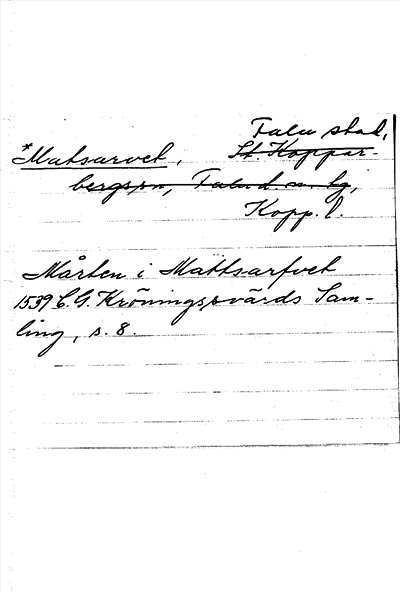 Falu stad,
*Matsarvet, St. Koppar-
bergs sn, Falu d. o. lg,
Kopp. l.
Mårten i Mattsarfvet
1539 C.G. Kröningssvärds Sam-
ling, s. 8.